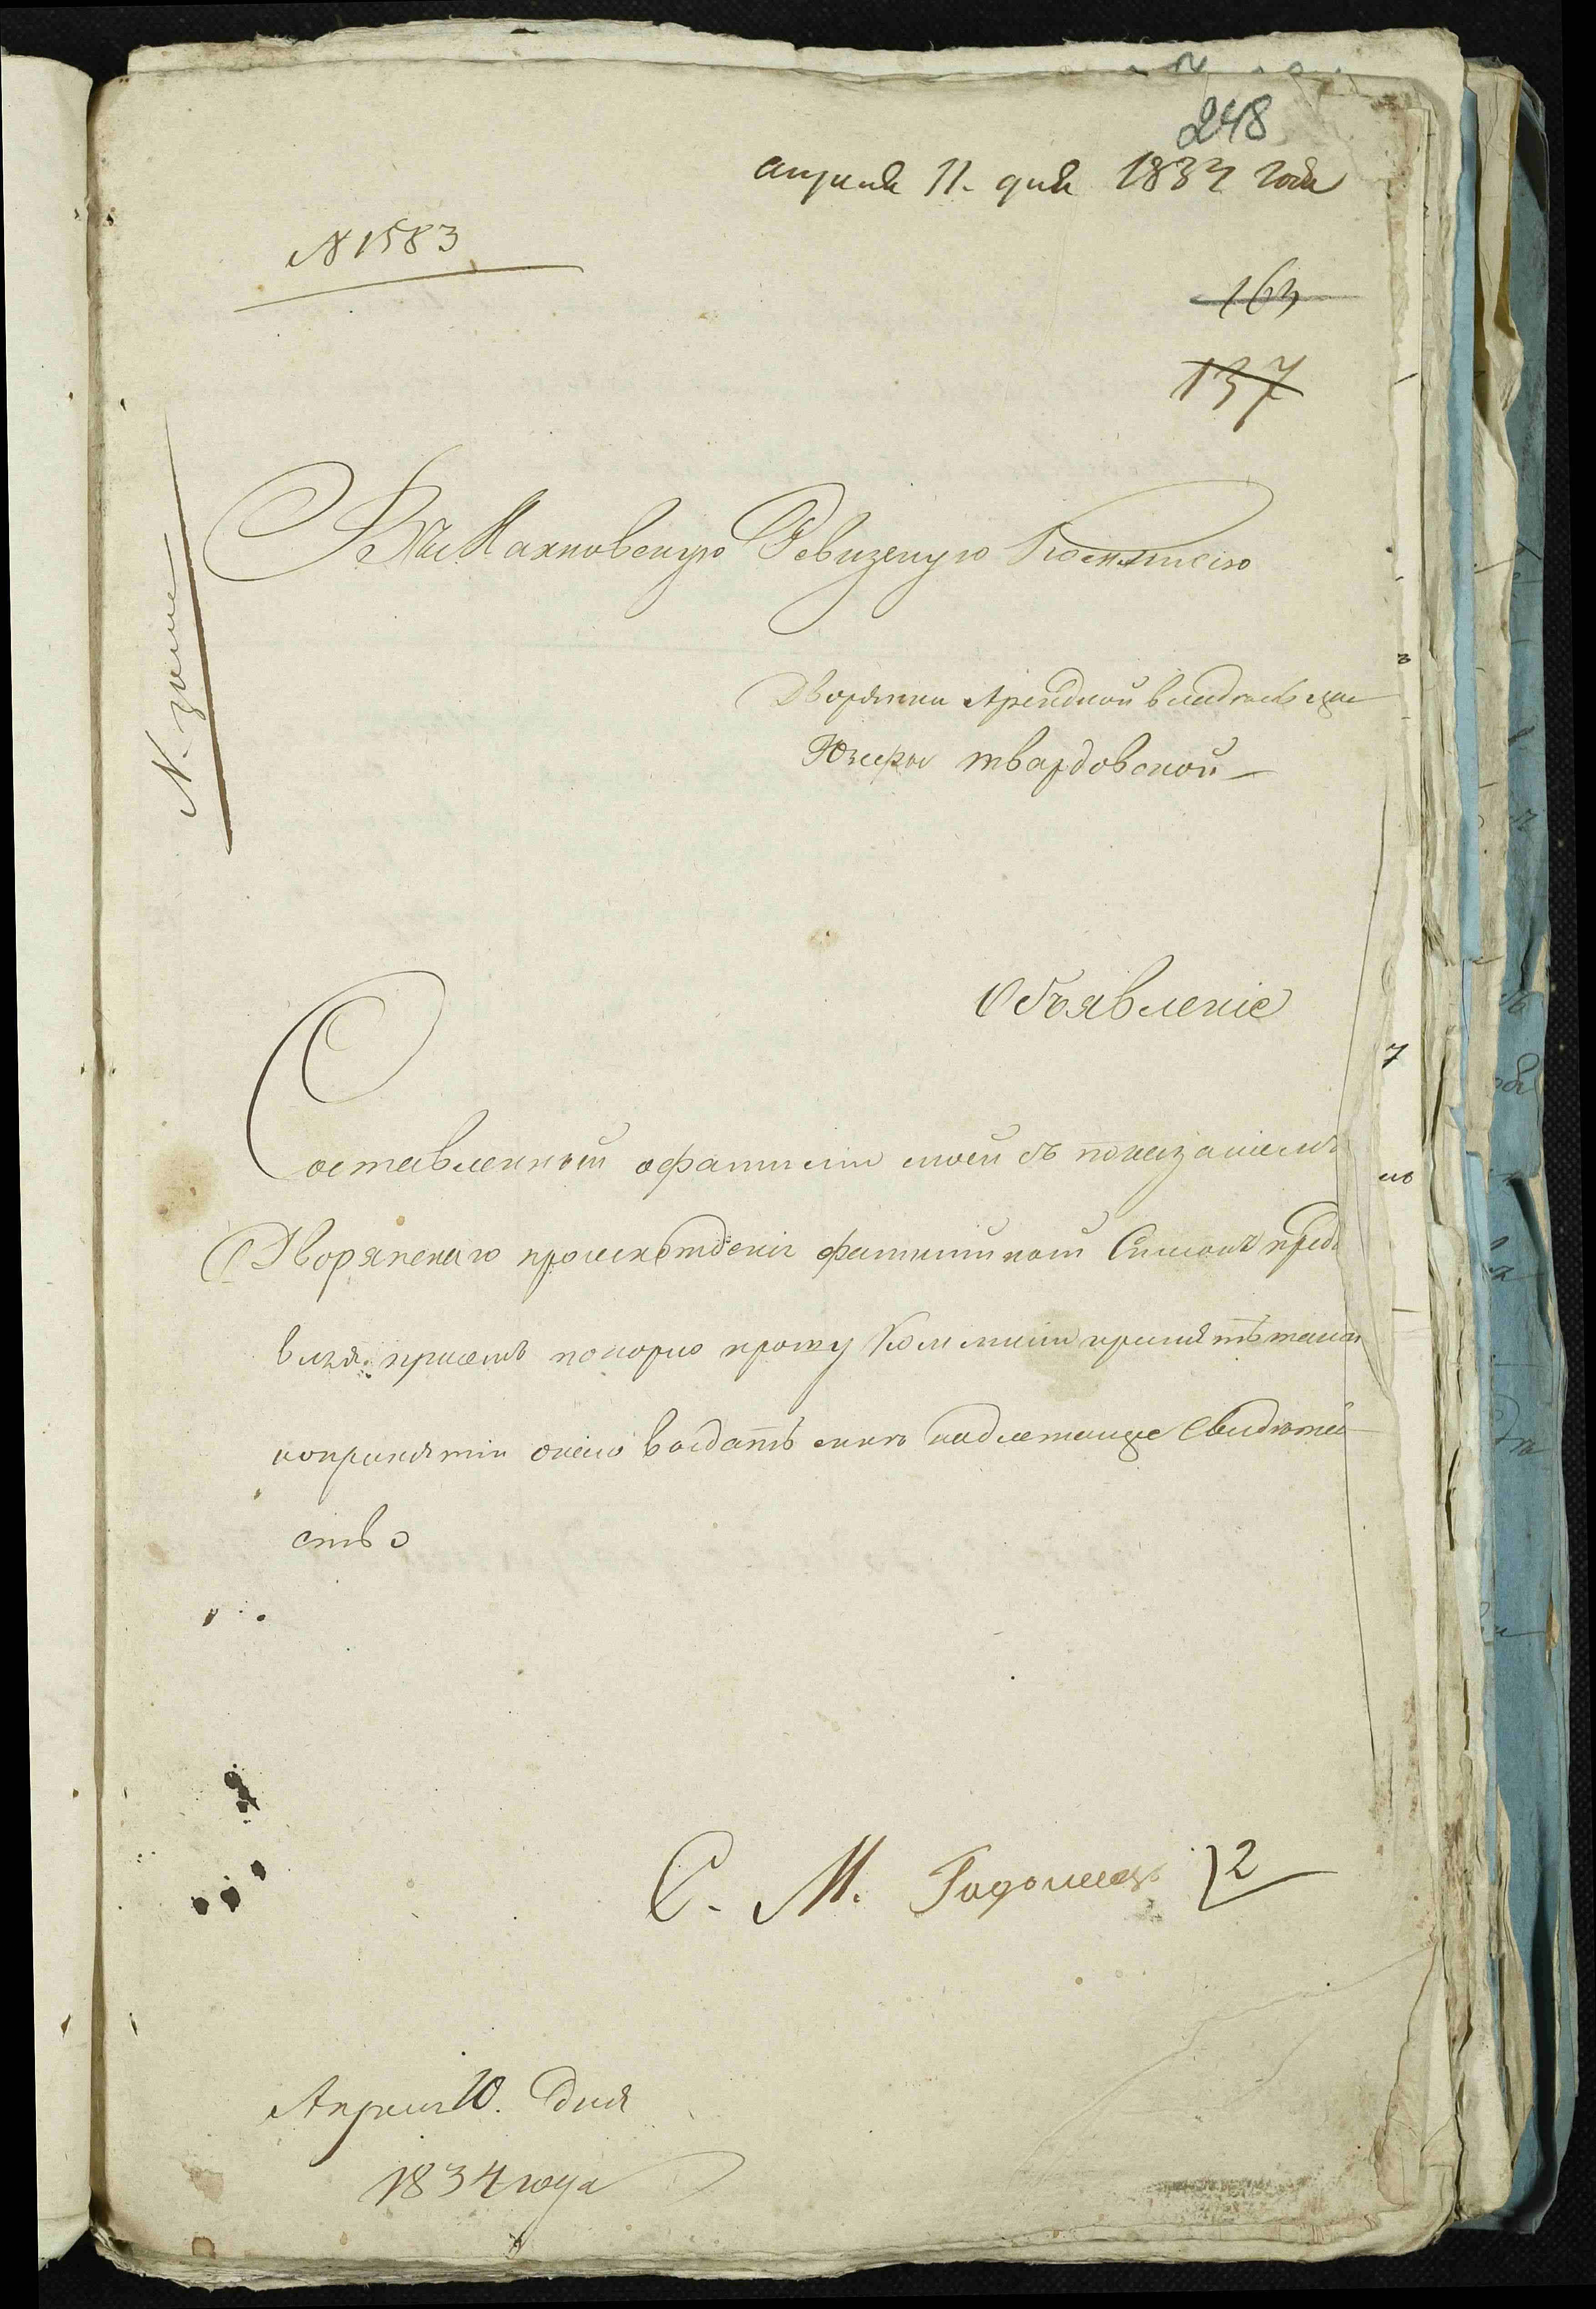 248
апреля 11. дня 1834 года
№ 1583
163
137
Въ Махновскую Ревизскую Комисію
Дворянки Арендной владѣлеца
Юзефы твардовской
Объявленіе
Составленный офамили моей съ показаніемъ
Дворянскаго происхотденія фамилийной Списокъ пред
вляя присемъ покорно прошу Коммисию принятъ
иопринятіи онаго воздатъ мнѣ надлетащее свидѣтел
ство
С. М. 12
Апреля 10. Дня
1834 года